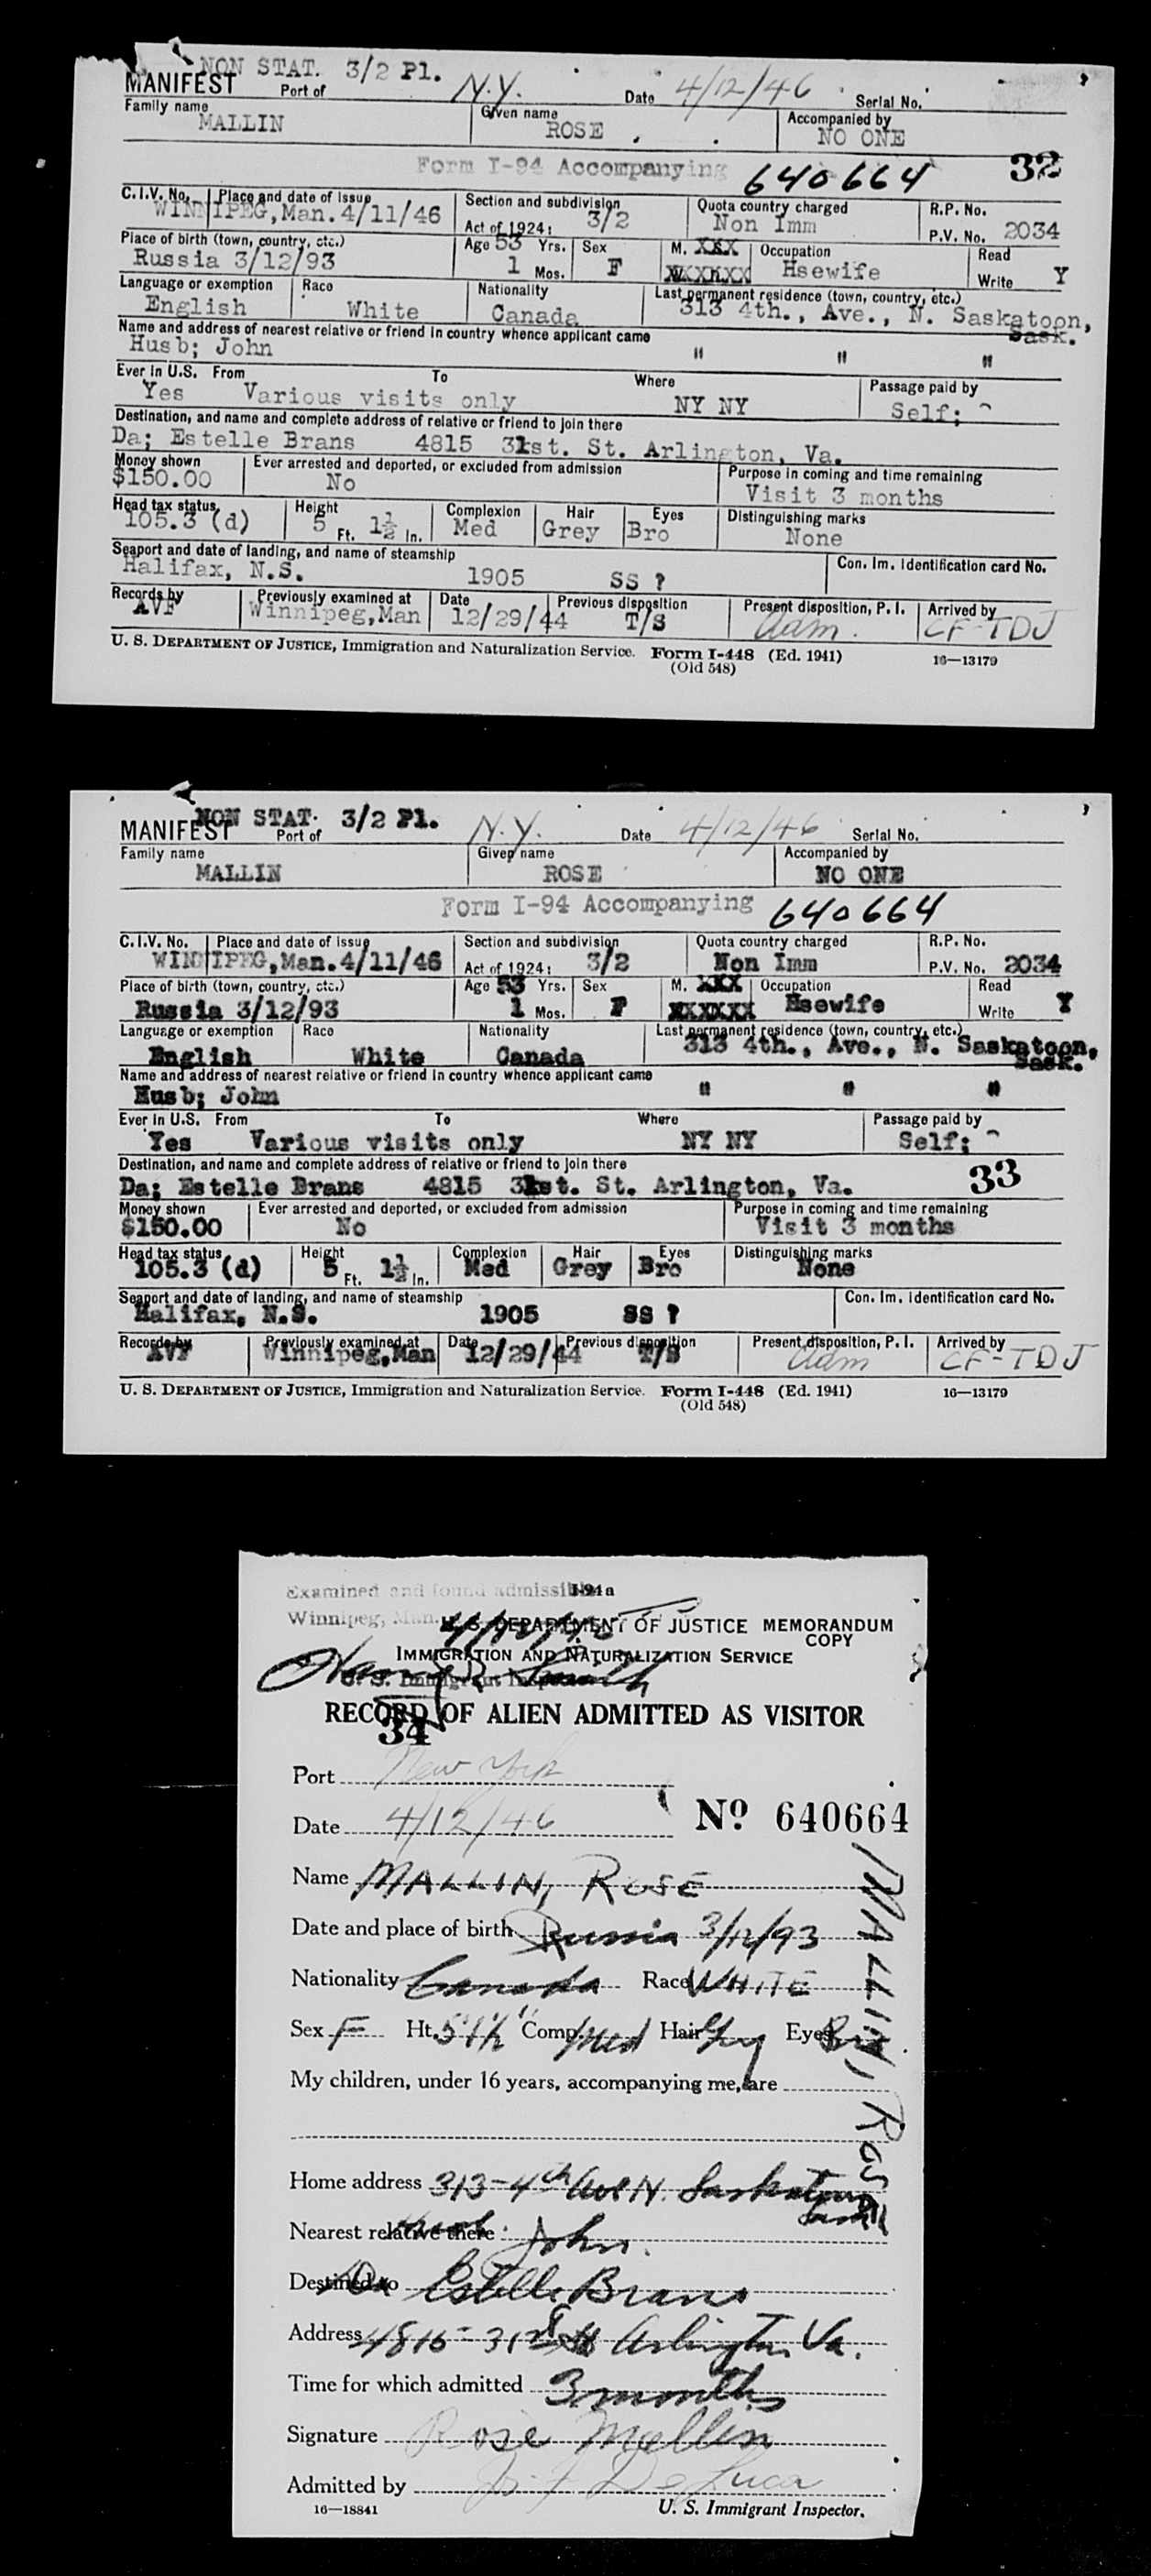 NON STAT. 3/2 Pl.
MANIFEST Port of N.Y. Date 4/12/46 Serial No.
Family name Given name Accompanied by
MALLIN ROSE NO ONE
Form I-94 Accompanying 640664 32
C.I.V. No. Place and date of issue Section and subdivision Quota country charged R.P. No.
WINNIPEG, Man. 4/11/46 Act of 1924: 3/2 Non Imm P.V. No. 2034
Place of birth (town, country, etc.) Age 53 Yrs. Sex M. XXX Occupation Read
Russia 3/12/93 1 Mos. F XXXXXX Hsewife Write Y
Language or exemption Race Nationality Last permanent residence (town, country, etc.)
English White Canada 313 4th., Ave., N. Saskatoon,
Sask.
Name and address of nearest relative or friend in country whence applicant came
Husb; John " " "
Ever in U.S. From To Where Passage paid by
Yes Various visits only NY NY Self;
Destination, and name and complete address of relative or friend to join there
Da; Estelle Brans 4815 31st. St. Arlington, Va.
Money shown Ever arrested and deported, or excluded from admission Purpose in coming and time remaining
$150.00 No Visit 3 months
Head tax status Height Complexion Hair Eyes Distinguishing marks
105.3 (d) 5 Ft. 1½ In. Med Grey Bro None
Seaport and date of landing, and name of steamship Con. Im. Identification card No.
Halifax, N.S. 1905 SS ?
Records by Previously examined at Date Previous disposition Present disposition, P. I. Arrived by
AVF Winnipeg,Man 12/29/44 T/S Adm. CF-TDJ
U. S. DEPARTMENT OF JUSTICE, Immigration and Naturalization Service. Form I-448 (Ed. 1941) 16—13179
(Old 548)
NON STAT. 3/2 Pl.
MANIFEST Port of N.Y. Date 4/12/46 Serial No.
Family name Given name Accompanied by
MALLIN ROSE NO ONE
Form I-94 Accompanying 640664
C.I.V. No. Place and date of issue Section and subdivision Quota country charged R.P. No.
WINNIPEG, Man. 4/11/46 Act of 1924: 3/2 Non Imm P.V. No. 2034
Place of birth (town, country, etc.) Age 53 Yrs. Sex M. XXX Occupation Read
Russia 3/12/93 1 Mos. F XXXXXX Hsewife Write Y
Language or exemption Race Nationality Last permanent residence (town, country, etc.)
English White Canada 313 4th., Ave., N. Saskatoon,
Sask.
Name and address of nearest relative or friend in country whence applicant came
Husb; John " " "
Ever in U.S. From To Where Passage paid by
Yes Various visits only NY NY Self;
Destination, and name and complete address of relative or friend to join there
Da; Estelle Brans 4815 31st. St. Arlington, Va. 33
Money shown Ever arrested and deported, or excluded from admission Purpose in coming and time remaining
$150.00 No Visit 3 months
Head tax status Height Complexion Hair Eyes Distinguishing marks
105.3 (d) 5 Ft. 1½ In. Med Grey Bro None
Seaport and date of landing, and name of steamship Con. Im. Identification card No.
Halifax, N.S. 1905 SS ?
Records by Previously examined at Date Previous disposition Present disposition, P. I. Arrived by
AVF Winnipeg,Man 12/29/44 T/S Adm CF-TDJ
U. S. DEPARTMENT OF JUSTICE, Immigration and Naturalization Service. Form I-448 (Ed. 1941) 16—13179
(Old 548)
Examined and found admissible I-94a
Winnipeg, Man. 4/12/46
U. S. DEPARTMENT OF JUSTICE MEMORANDUM
COPY
IMMIGRATION AND NATURALIZATION SERVICE
Smith
U. S. Immigrant Inspector
RECORD OF ALIEN ADMITTED AS VISITOR
34
Port New York
Date 4/12/46 No 640664
Name MALLIN, ROSE
Date and place of birth Russia 3/12/93
Nationality Canada Race WHITE
Sex F Ht. 5'1½" Comp. Med Hair Gry Eyes Bro.
My children, under 16 years, accompanying me, are
MALLIN, ROSE
Home address 313-4th Ave N. Saskatoon
Sask
Nearest relative there: Husb John.
Destined to Da Estelle Brans
Address 4815-31st St Arlington Va.
Time for which admitted 3 months
Signature Rose Mallin
Admitted by De Luca
16—18841 U. S. Immigrant Inspector.